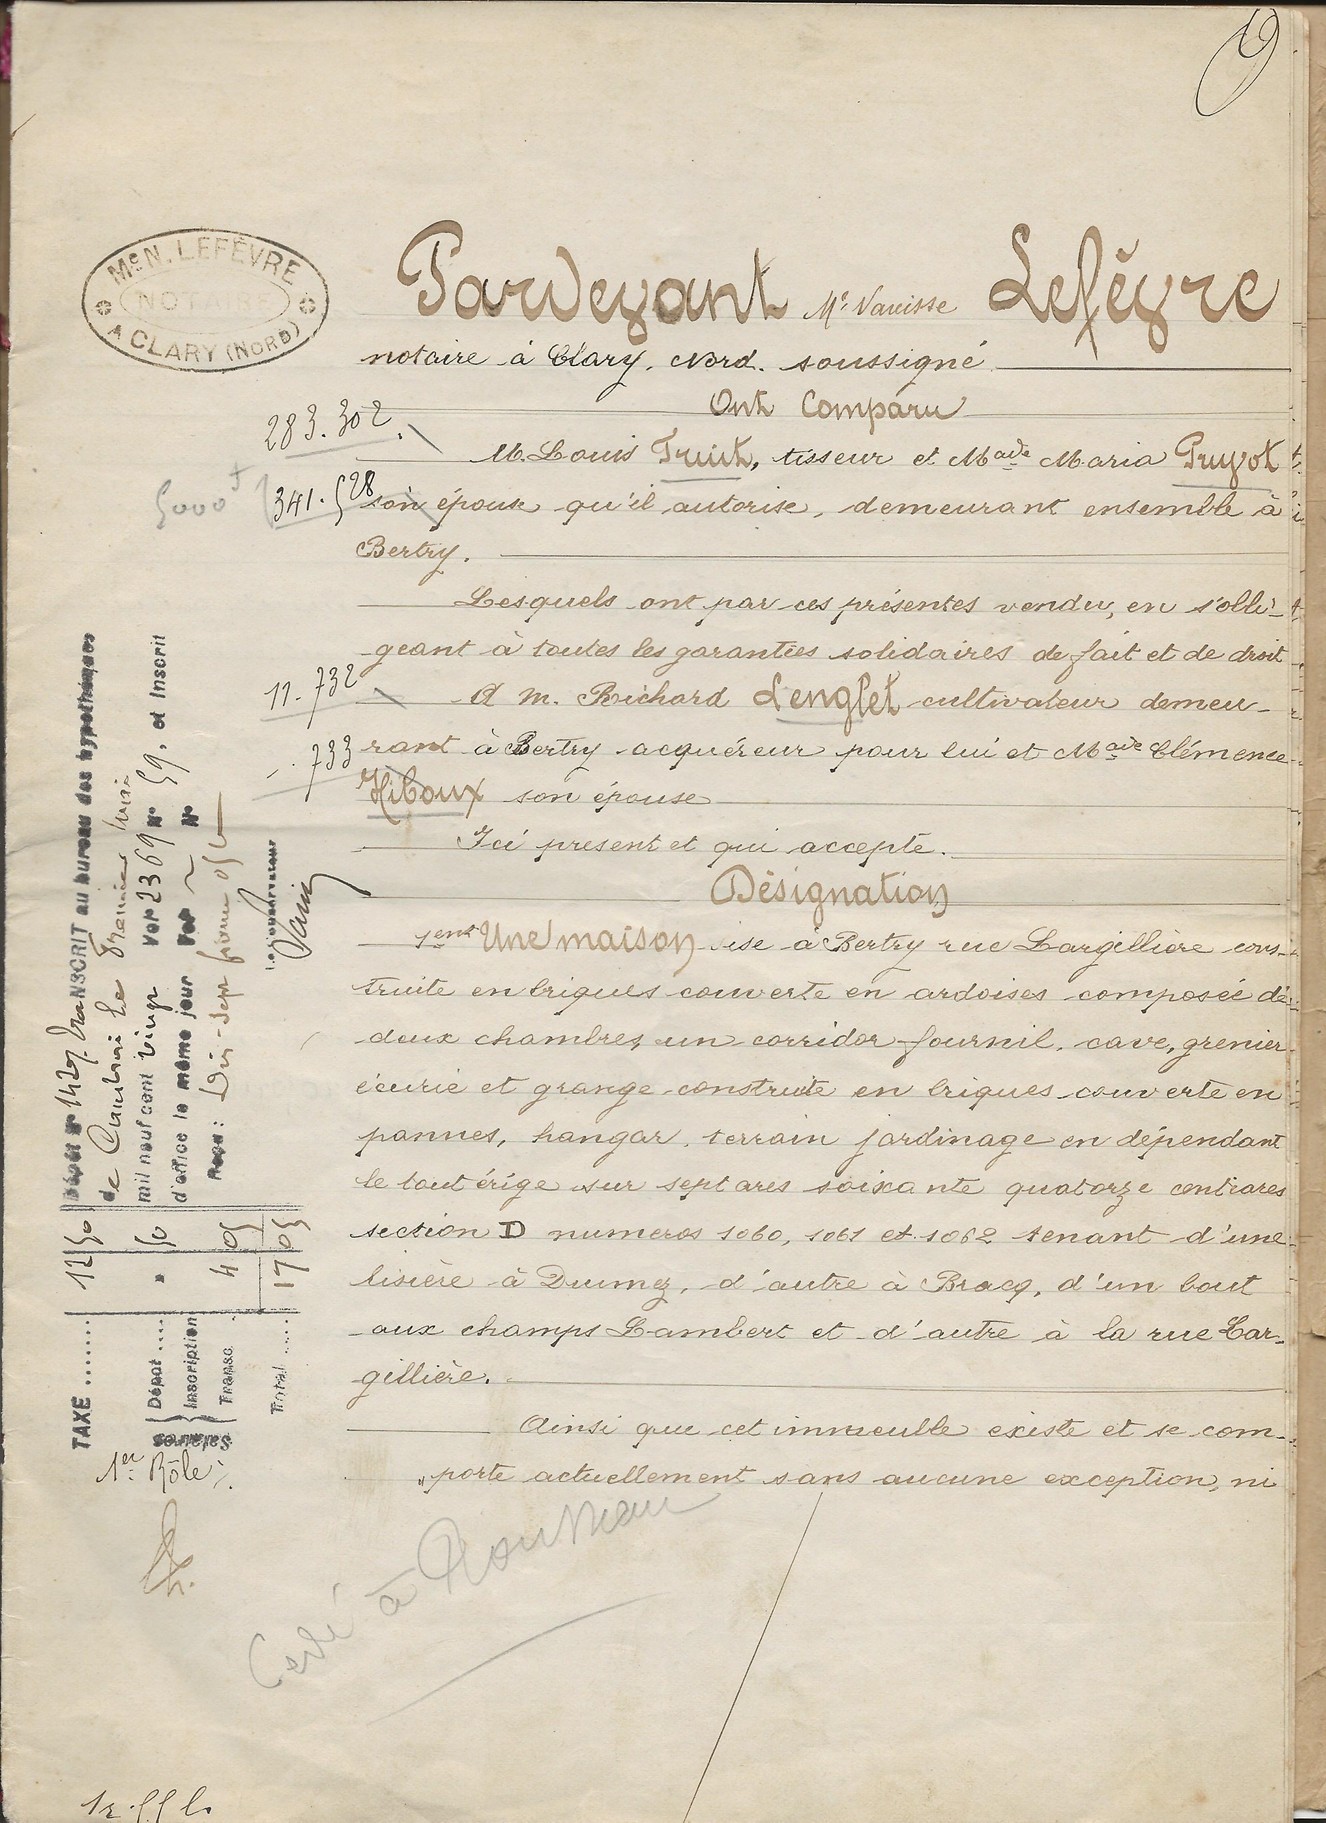 Mᵉ N. LEFÈVRE
NOTAIRE
A CLARY (NORD)
Pardevant Mᵉ Narcisse Lefèvre
notaire à Clary, Nord. soussigné
Ont Comparu
M. Louis Truit, tisseur et Mᵃᵈᵉ Maria Pruvot
son épouse qu'il autorise, demeurant ensemble à
Bertry.
Lesquels ont par ces présentes vendu, en s'obli-
geant à toutes les garanties solidaires de fait et de droit
A M. Richard Lenglet cultivateur demeu-
rant à Bertry acquéreur pour lui et Mᵃᵈᵉ Clémence
Hiboux son épouse
Ici présent et qui accepte.
Désignation
1ᵉⁿᵗ Une maison sise à Bertry rue Largillière cons-
truite en briques couverte en ardoises composée de
deux chambres, un corridor fournil, cave, grenier
écurie et grange construite en briques couverte en
pannes, hangar, terrain jardinage en dépendant
le tout érigé sur sept ares soixante quatorze centiares
section D numéros 1060, 1061 et 1062 tenant d'une
lisière à Dumez, d'autre à Bracq, d'un bout
aux champs Lambert et d'autre à la rue Lar-
gillière.
Ainsi que cet immeuble existe et se com-
porte actuellement sans aucune exception, ni
283.302
5000 f
341.528
11.732
733
Dépôt nᵒ 1427. TRANSCRIT au bureau des hypothèques
de Cambrai le
mil neuf cent vingt Vol 2369 Nᵒ 59, et Inscrit
d'office le même jour Vol Nᵒ
Reçu: Dix-sept francs 05
Le Conservateur
TAXE ....... 12 50
Salaires
Dépôt .... " 50
Inscription
Transc. 4 05
Total ..... 17 05
1ᵉʳ Rôle
Cédé à